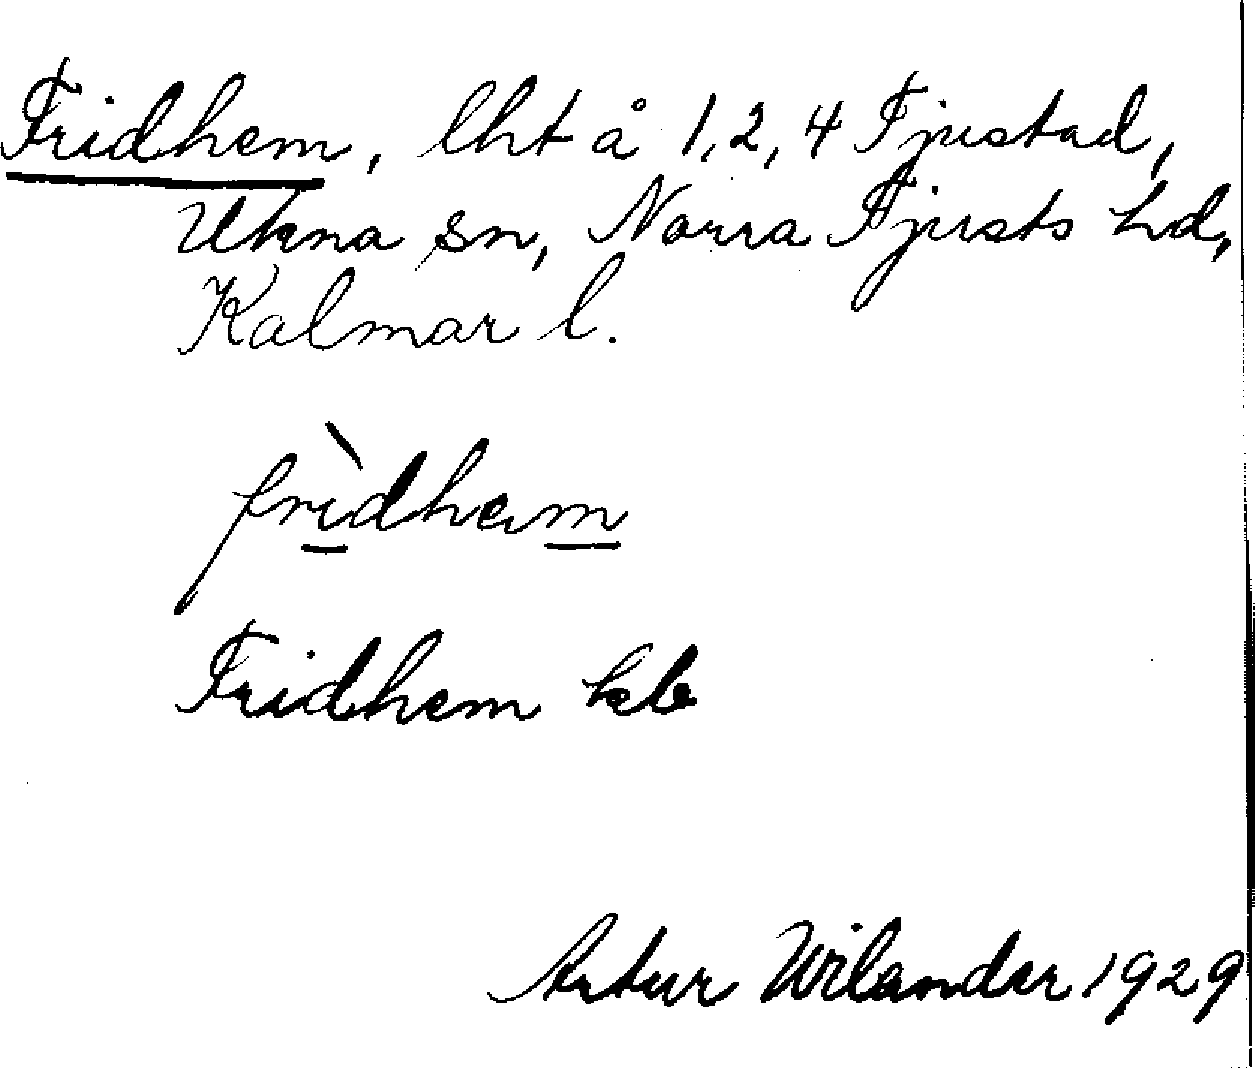 Fridhem, lht å 1, 2, 4 Tjustad,
Ukna sn, Norra Tjusts hd,
Kalmar l.
frìdhem
Fridhem kb
Artur Wilander 1929